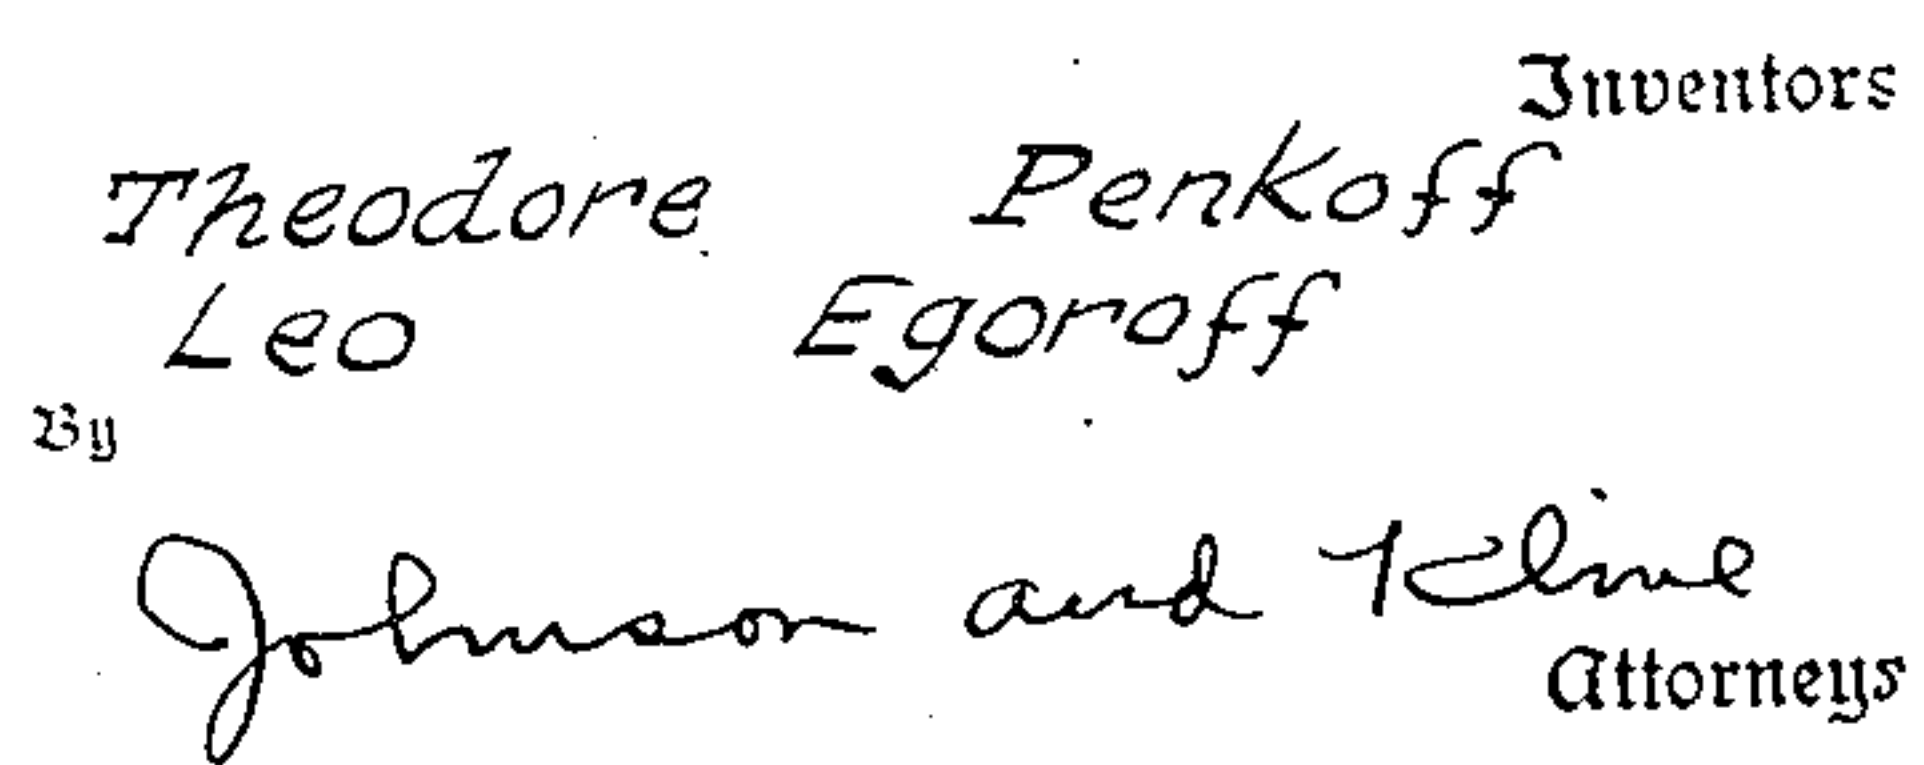 Inventors
Theodore Penkoff
Leo Egoroff
By
Johnson and Kline
Attorneys